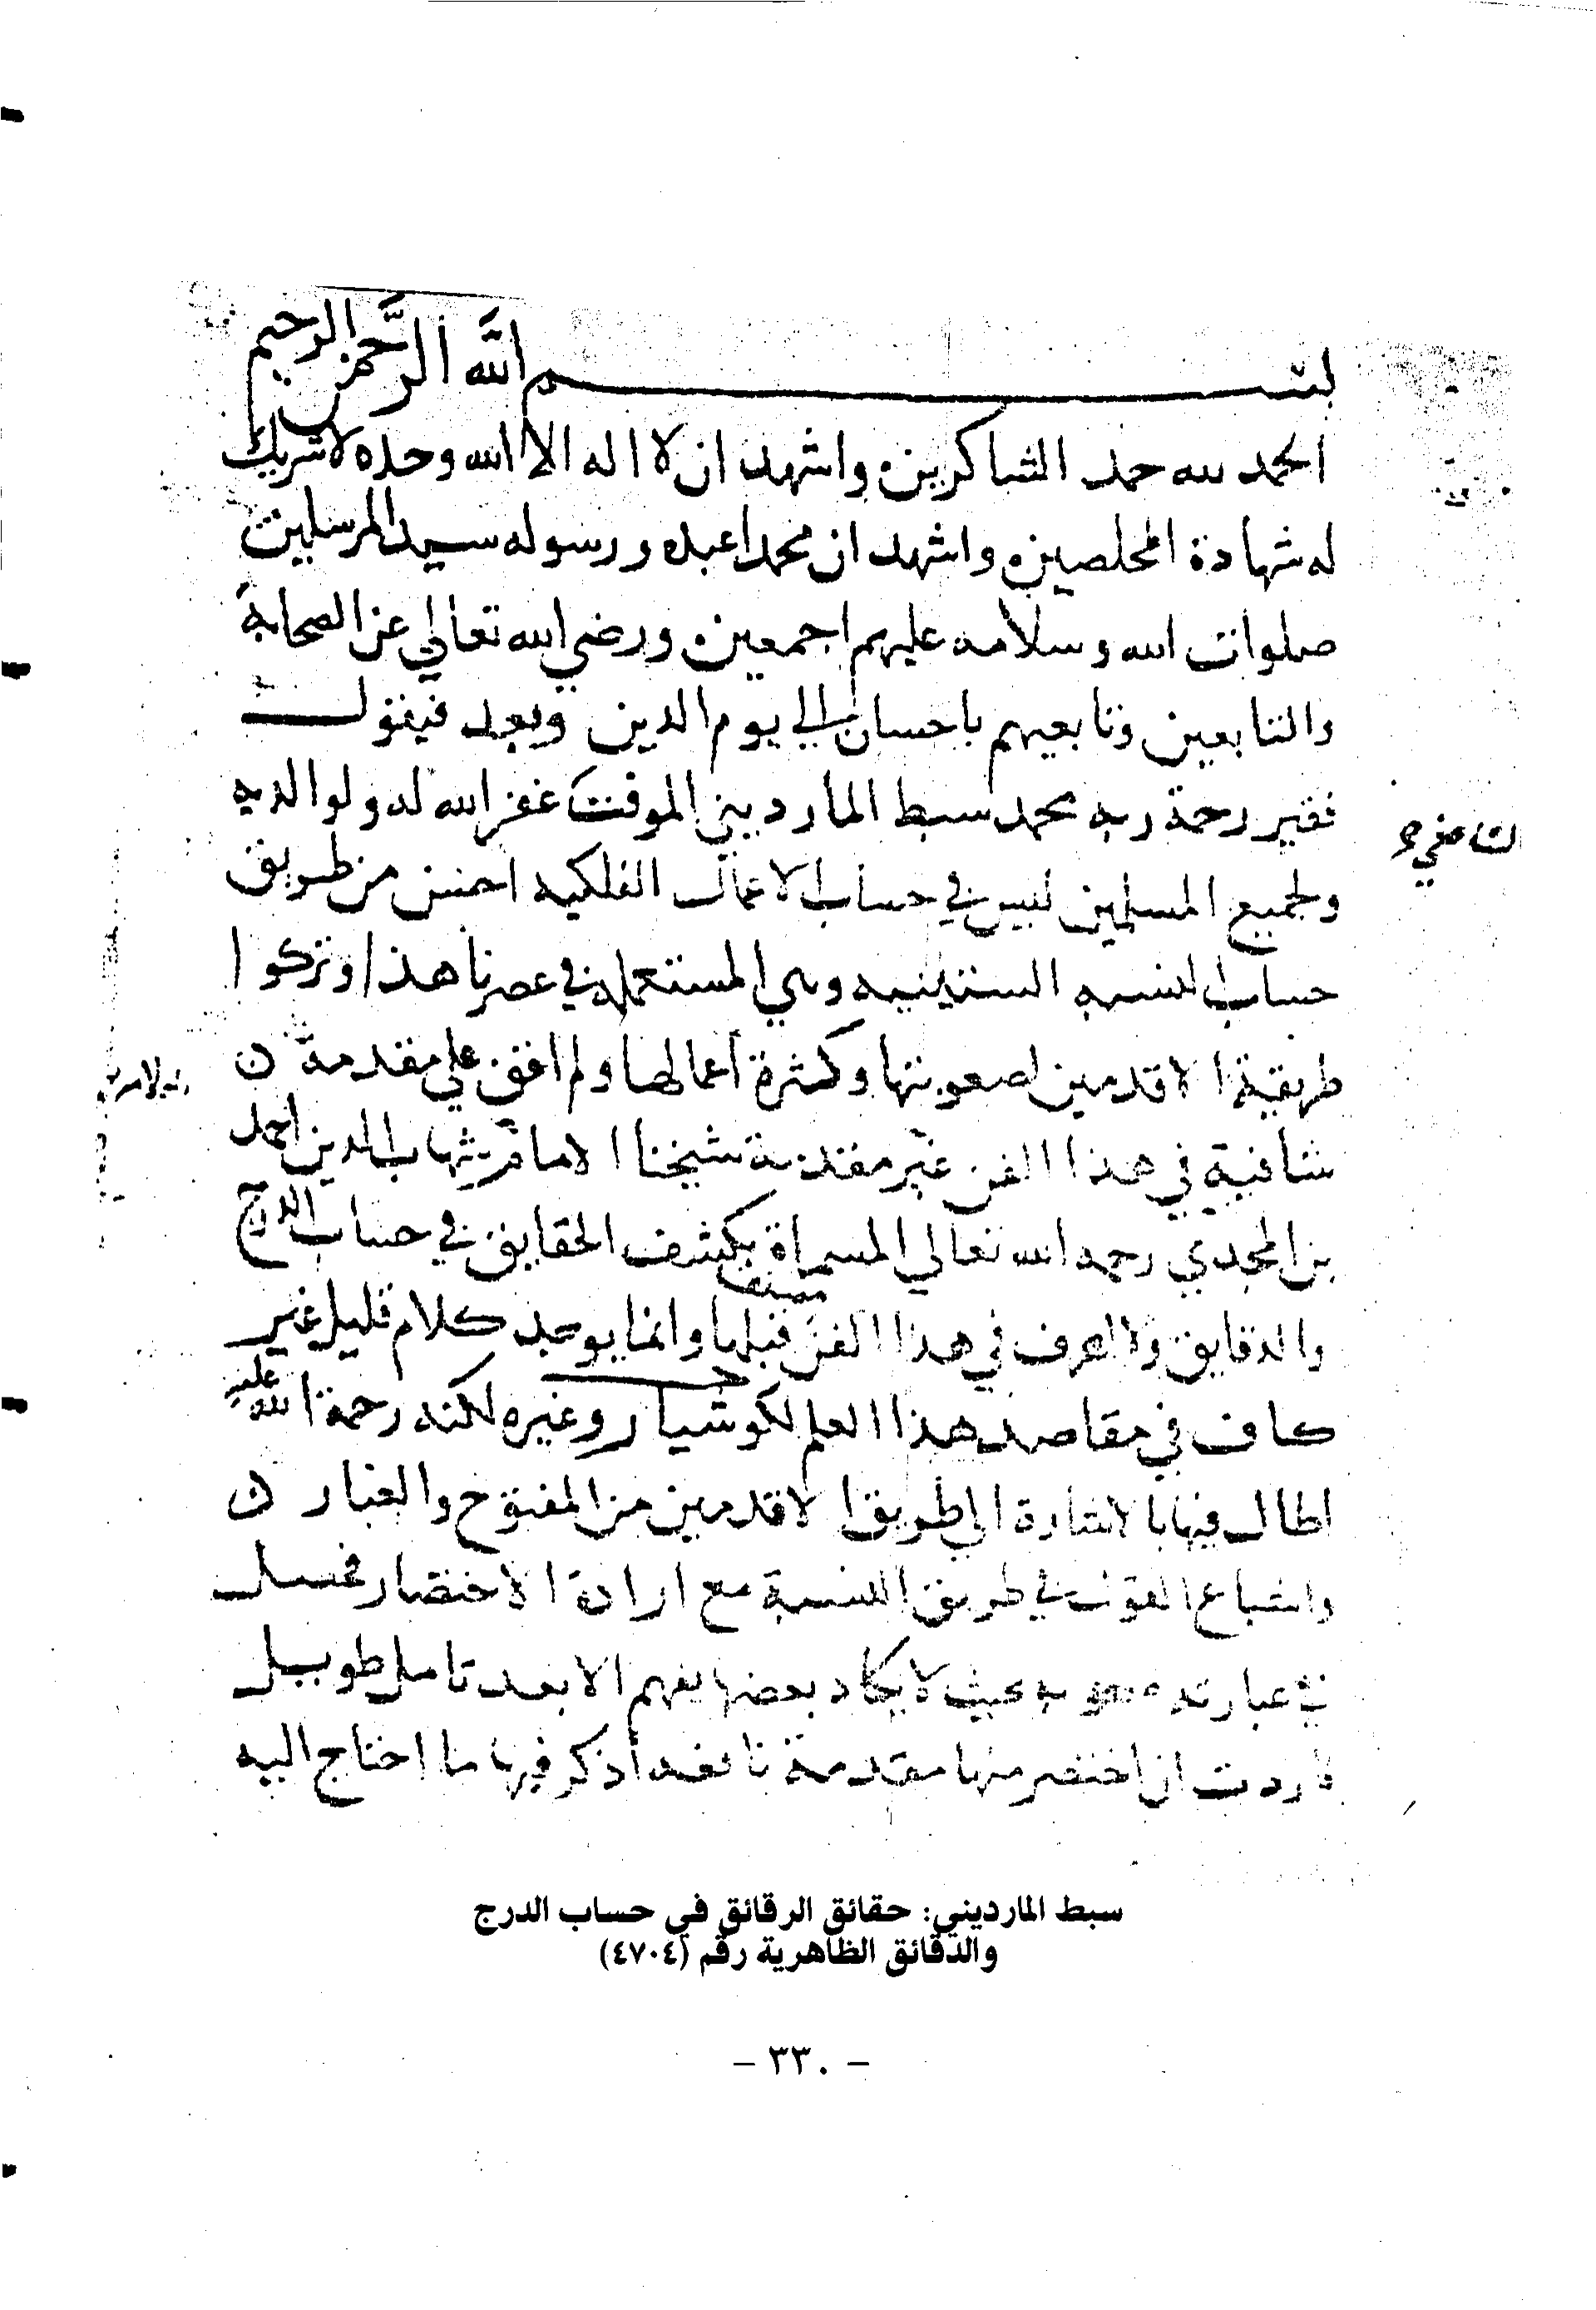 بسم الله الرحمن الرحيم
الحمد لله حمد الشاكرين واشهد ان لا اله الا الله وحده لا شريك
له شهادة المخلصين واشهد ان محمدا عبده ورسوله سيد المرسلين
صلوات الله وسلامه عليهم اجمعين ورضي الله تعالي عن الصحابة
والتابعين وتابعيهم باحسان الي يوم الدين وبعد فيقول
فقير رحمة ربه محمد سبط المارديني الموقت غفر الله له ولوالديه
ولجميع المسلمين ليس في حساب الاعمال الفلكيه احسن من طريق
حساب النسبه الستينيه وهي المستعمله في عصرنا هذا وتركوا
طريقة الاقدمين لصعوبتها وكثرة أعمالها ولم اقف علي مقدمة
شافية في هذا الفن غير مقدمة شيخنا الامام شهاب الدين احمد
بن المجدي رحمه الله تعالي المسماة بكشف الحقايق في حساب الدرج
والدقايق ولا اعرف في هذا الفن مصنف قبلها وانما يوجد كلام قليل غير
كاف في مقاصد هذا العلم لكوشيار وغيره لكنه رحمة الله عليه
اطال فيها بالاشارة الي طريق الاقدمين من المفتوح والغبار
واشباع القول في طريق النسبة مع ارادة الاختصار فحصل
في عبارته بحيث لا يكاد بعضها يفهم الا بعد تامل طويل
فاردت ان اختصر منها مقدمة نافعه أذكر فيها ما احتاج اليه
سبط المارديني: حقائق الرقائق في حساب الدرج
والدقائق الظاهرية رقم (٤٧٠٤)
- ٣٣٠ -